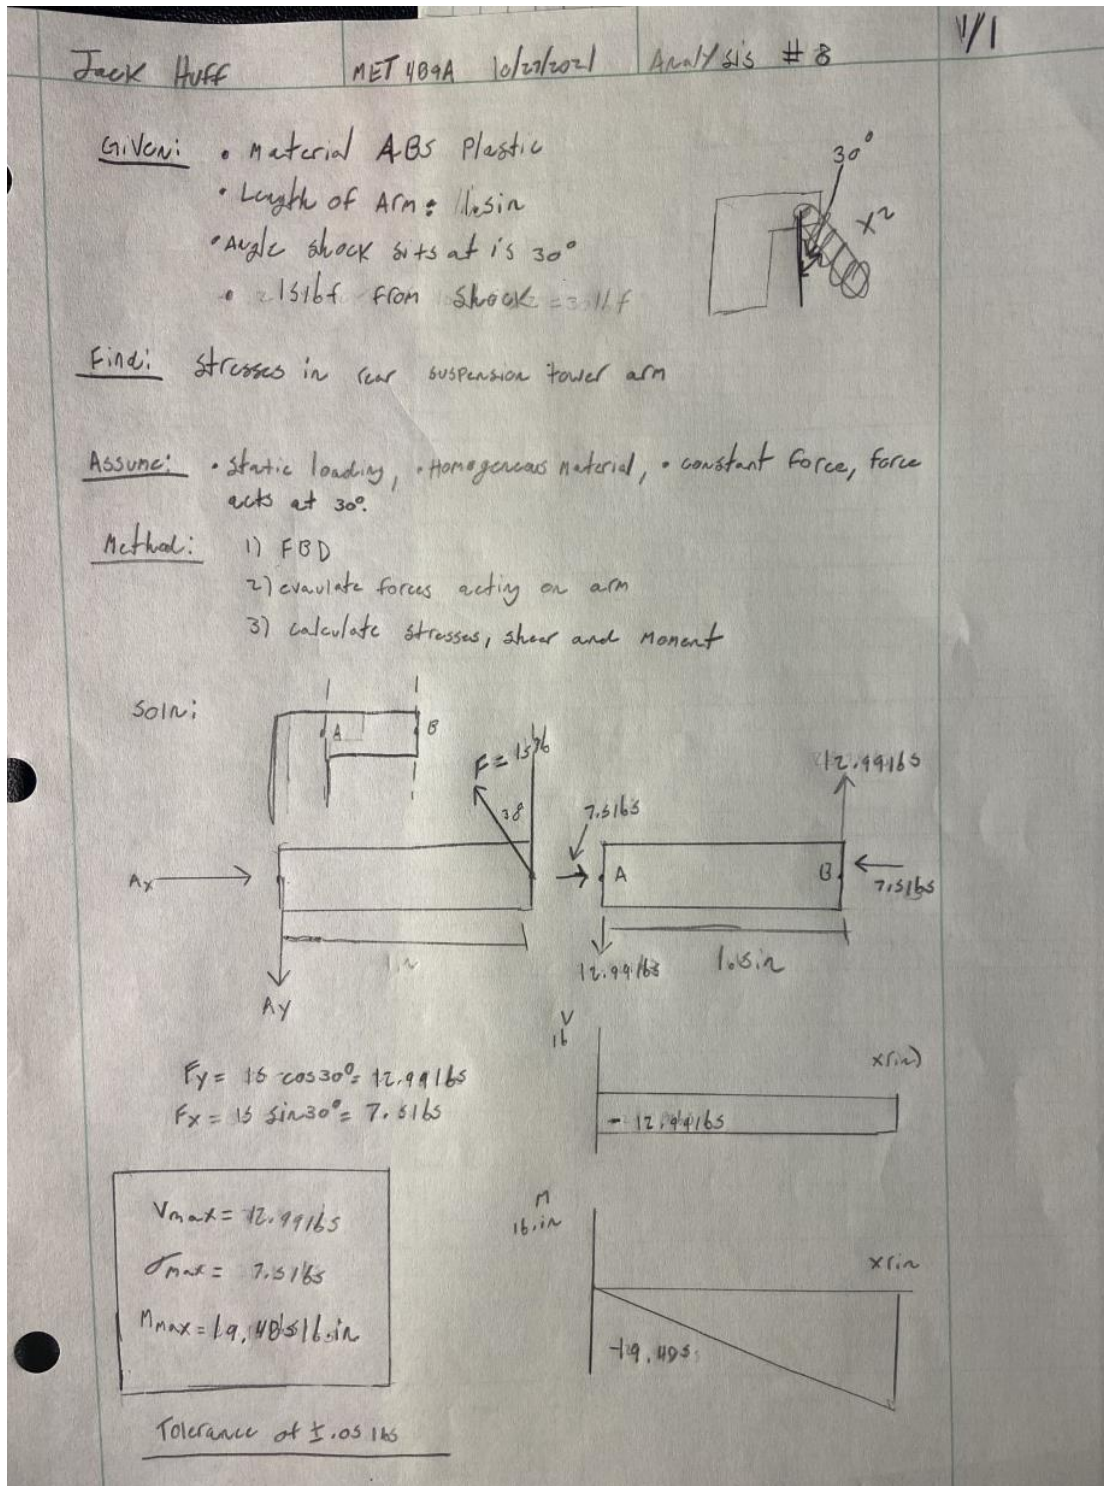 Jack Huff MET 489A 10/27/2021 Analysis # 8 1/1
Given: • Material ABS Plastic
• Length of Arm: 1.5in
• Angle shock sits at is 30°
• 15lbf from shock
30°
x2
Find: Stresses in rear suspension tower arm
Assume: • Static loading, • Homogeneous Material, • constant force, force
acts at 30°.
Method: 1) FBD
2) evaulate forces acting on arm
3) calculate stresses, shear and Moment
Soln:
A B
F = 15lb
30
12.99lbs
7.5lbs
Ax
A B
7.5lbs
12.99lbs
1.5in
Ay
V
lb
x(in)
Fy = 15 cos30° = 12.99lbs
Fx = 15 sin30° = 7.5lbs
-12.99lbs
Vmax = 12.99lbs
σmax = 7.5lbs
Mmax = 19.485lb.in
M
lb.in
x(in
-19.485
Tolerance of ±.05 lbs